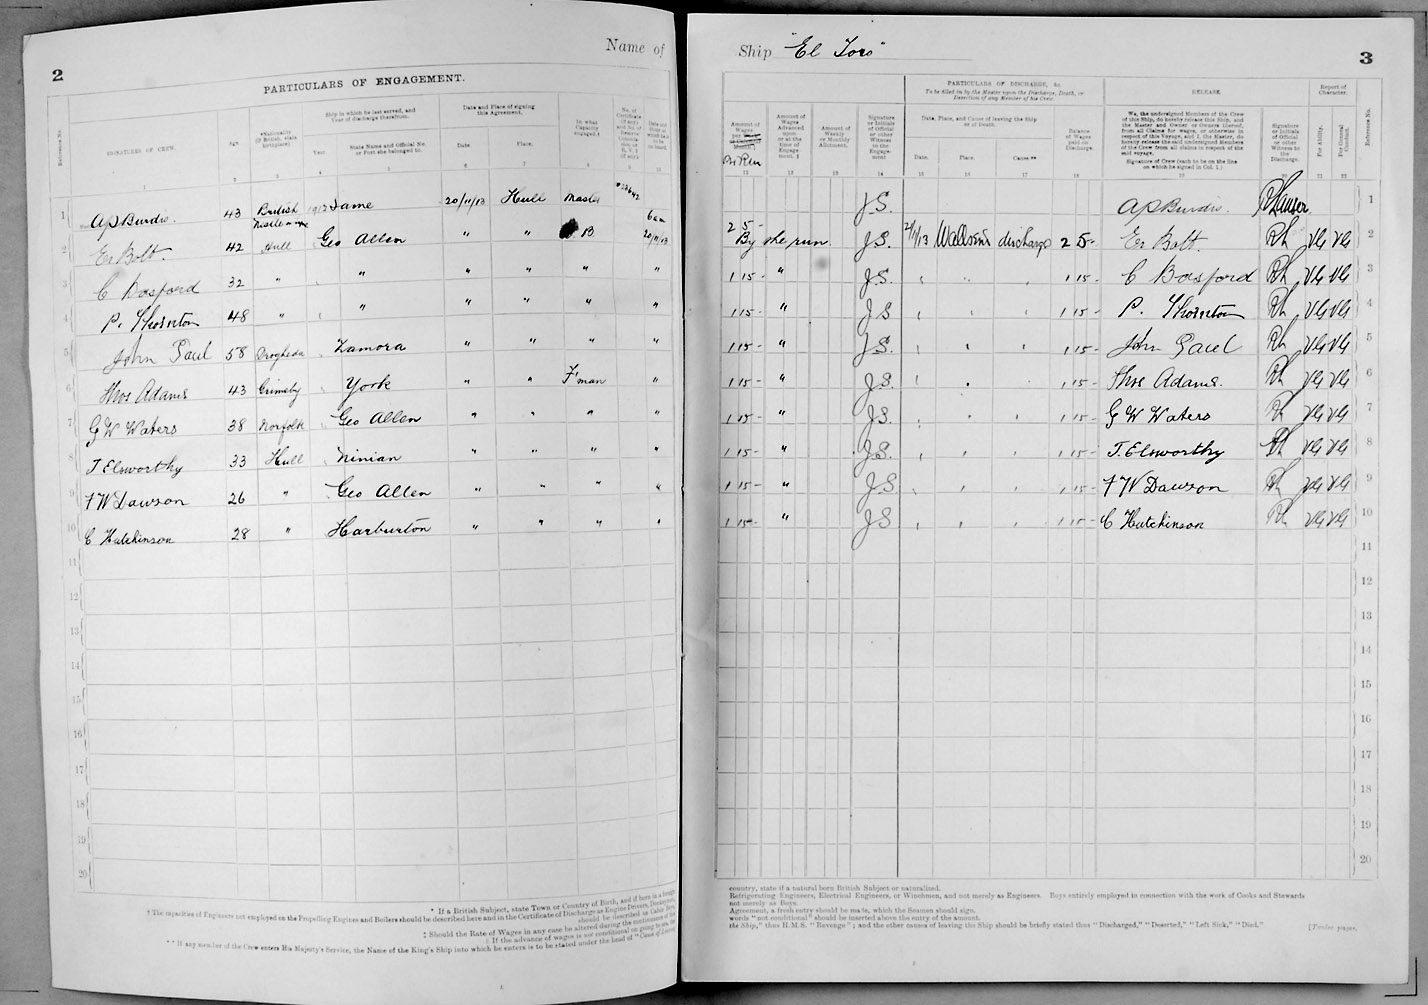 2
Name of
PARTICULARS OF ENGAGEMENT.
Reference No.
SIGNATURES OF CREW.
Age.
*Nationality (If British, state birthplace)
Ship in which he last served, and Year of discharge therefrom.
Year.
State Name and Official No. or Port she belonged to.
Date and Place of signing this Agreement.
Date.
Place.
In what Capacity engaged.†
1 2 3 4 5 6 7 8 10
1 A P Burdis. 43 British 1913 Same 20/11/13 Hull Master
2 Er Bolt. 42 Hull Geo Allen " " B 6 am 20/11/13
3 C Bosford 32 " " " " " "
4 P. Thornton 48 " " " " " "
5 John Gaul 58 Drogheda Zamora " " " "
6 Thos Adams 43 Grimsby York " " F'man "
7 G W Waters 38 Norfolk Geo Allen " " " "
8 T Elsworthy 33 Hull Ninian " " " "
9 F W Dawson 26 " Geo Allen " " " "
10 C Hutchinson 28 " Harburton " " " "
11
12
13
14
15
16
17
18
19
20
* If a British Subject, state Town or Country of Birth, and if born in a foreign
† The capacities of Engineers not employed on the Propelling Engines and Boilers should be described here and in the Certificate of Discharge as Engine Drivers, Donkeymen,
should be described as Cabin Boys,
‡ Should the Rate of Wages in any case be altered during the continuance of the
§ If the advance of wages is not conditional on going to sea, the
** If any member of the Crew enters His Majesty's Service, the Name of the King's Ship into which he enters is to be stated under the head of "Cause of Leaving
Ship "El Toro"
3
PARTICULARS OF DISCHARGE, &c.
To be filled in by the Master upon the Discharge, Death, or Desertion of any Member of his Crew.
RELEASE.
Report of Character.
Amount of Wages per
Amount of Wages Advanced upon or at the time of Engagement. ‡
Amount of Weekly or Monthly Allotment.
Signature or Initials of Official or other Witness to the Engagement
Date, Place, and Cause of leaving the Ship or of Death.
Date.
Place.
Cause.**
Balance of Wages paid on Discharge.
We, the undersigned Members of the Crew of this Ship, do hereby release this Ship, and the Master and Owner or Owners thereof, from all Claims for wages, or otherwise in respect of this Voyage, and I, the Master, do hereby release the said undersigned Members of the Crew from all claims in respect of the said voyage.
Signature of Crew (each to be on the line on which he signed in Col. 1.)
Signature or Initials of Official or other Witness to the Discharge.
For Ability.
For General Conduct.
Reference No.
11 12 13 14 15 16 17 18 19 20 21 22
J.S. A P Burdis. 1
2 5 - By the run J.S. discharge 2 5 - Er Bolt. Rh VG VG 2
1 15 - " J.S. 1 15 - C Bosford Rh VG VG 3
1 15 - " J.S 1 15 - P. Thornton Rh VG VG 4
1 15 - " J.S. 1 15 - John Gaul Rh VG VG 5
1 15 - " J.S. 1 15 - Thos Adams. Rh VG VG 6
1 15 - " J.S. 1 15 - G W Waters Rh VG VG 7
1 15 - " J.S. 1 15 - T. Elsworthy Rh VG VG 8
1 15 - " J.S 1 15 - F W Dawson Rh VG VG 9
1 15 - " J.S 1 15 - C Hutchinson Rh VG VG 10
11
12
13
14
15
16
17
18
19
20
country, state if a natural born British Subject or naturalized.
Refrigerating Engineers, Electrical Engineers, or Winchmen, and not merely as Engineers. Boys entirely employed in connection with the work of Cooks and Stewards
not merely as Boys.
Agreement, a fresh entry should be made, which the Seamen should sign.
words "not conditional" should be inserted above the entry of the amount.
the Ship," thus H.M.S. "Revenge"; and the other causes of leaving the Ship should be briefly stated thus "Discharged," "Deserted," "Left Sick," "Died."